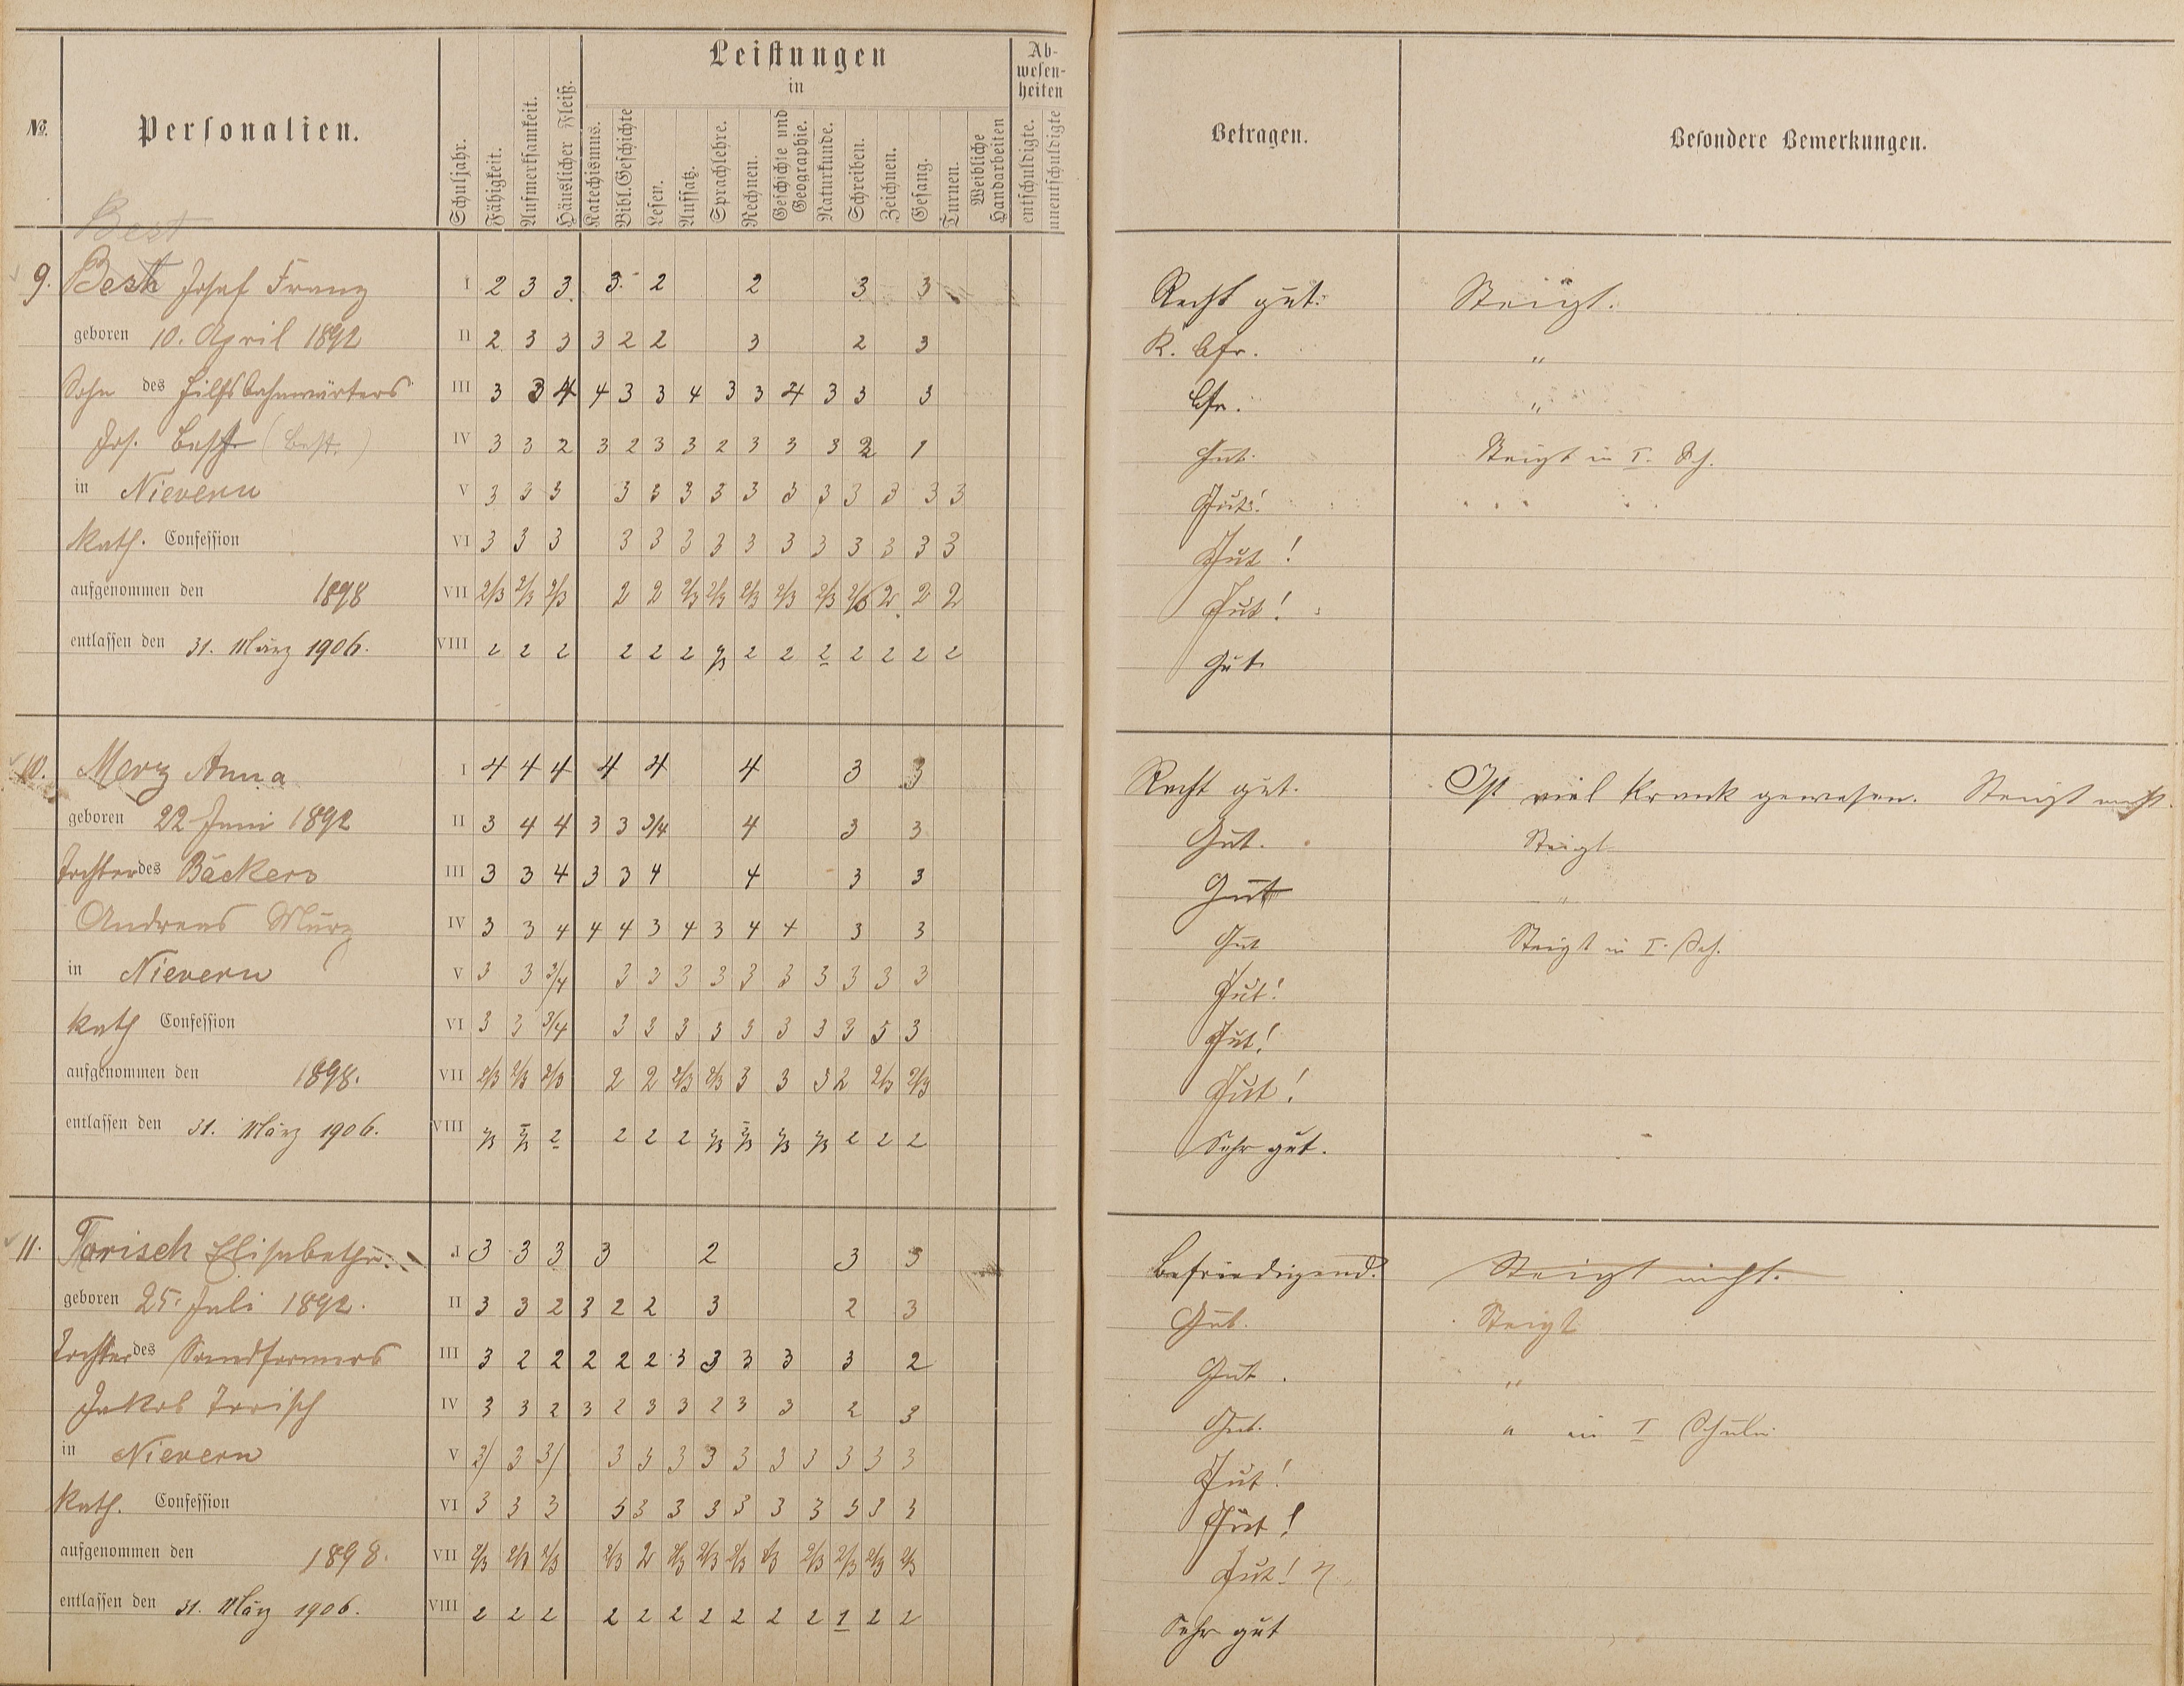 Leistungen
in
Ab-
wesen-
heiten
№.
Personalien.
Schuljahr.
Fähigkeit.
Aufmerksamkeit.
Häuslicher Fleiß.
Katechismus.
Bibl.Geschichte
Lesen.
Aufsatz.
Sprachlehre.
Rechnen.
Geschichte und
Geographie.
Naturkunde.
Schreiben.
Zeichnen.
Gesang.
Turnen.
Weibliche
Handarbeiten
entschuldigte.
unentschuldigte
Betragen.
Besondere Bemerkungen.
Best
9. Josef Franz I 2 3 3 3 2 2 3 3 Recht gut. Steigt.
geboren 10. April 1892 II 2 3 3 3 2 2 3 2 3 R. bfr. "
Sohn des Hilfsbahnwärters III 3 3 4 4 3 3 4 3 3 4 3 3 3 bfr. "
Jos. (Best.) IV 3 3 2 3 2 3 3 2 3 3 3 2 1 Gut. Steigt in I. Sch.
in Nievern V 3 3 3 3 3 3 3 3 3 3 3 3 3 3 Gut!
Kath. Confession VI 3 3 3 3 3 3 3 3 3 3 3 3 3 3 Gut!
aufgenommen den 1898 VII 2/3 2/3 2/3 2 2 2/3 2/3 2/3 2/3 2/3 2/3 2 2 2 Gut!
entlassen den 31. März 1906. VIII 2 2 2 2 2 2 2/3 2 2 2 2 2 2 2 Gut
10. Merz Anna I 4 4 4 4 4 4 3 3 Recht gut. Ist viel krank gewesen. Steigt nicht.
geboren 22 Juni 1892 II 3 4 4 3 3 3/4 4 3 3 Gut. Steigt
Tochter des Bäckers III 3 3 4 3 3 4 4 3 3 Gut "
Andreas IV 3 3 4 4 4 3 4 3 4 4 3 3 Gut Steigt in I. Sch.
in Nievern V 3 3 3/4 3 3 3 3 3 3 3 3 3 3 Gut!
Kath Confession VI 3 3 3/4 3 3 3 3 3 3 3 3 3 3 Gut!
aufgenommen den 1898. VII 2/3 2/3 2/3 2 2 2/3 2/3 3 3 3 2 2/3 2/3 Gut!
entlassen den 31. März 1906. VIII 2/3 2/3 2 2 2 2 2/3 2/3 2/3 2/3 2 2 2 Sehr gut.
11. Torisch Elisabetha. I 3 3 3 3 2 3 3 Befriedigend. Steigt nicht.
geboren 25. Juli 1892. II 3 3 2 3 2 2 3 2 3 Gut. Steigt
Tochter des Sandformers III 3 2 2 2 2 2 3 3 3 3 3 2 Gut. "
Jakob Torisch IV 3 3 2 3 2 3 3 2 3 3 2 3 Gut. " in I Schule
in Nievern V 3/ 3 3/ 3 3 3 3 3 3 3 3 3 3 Gut!
Kath. Confession VI 3 3 3 3 3 3 3 3 3 3 3 3 3 Gut!
aufgenommen den 1898. VII 2/3 2/3 2/3 2/3 2 2/3 2/3 2/3 2/3 2/3 2/3 2/3 2/3 Gut!
entlassen den 31. März 1906. VIII 2 2 2 2 2 2 2 2 2 2 1 2 2 Sehr gut